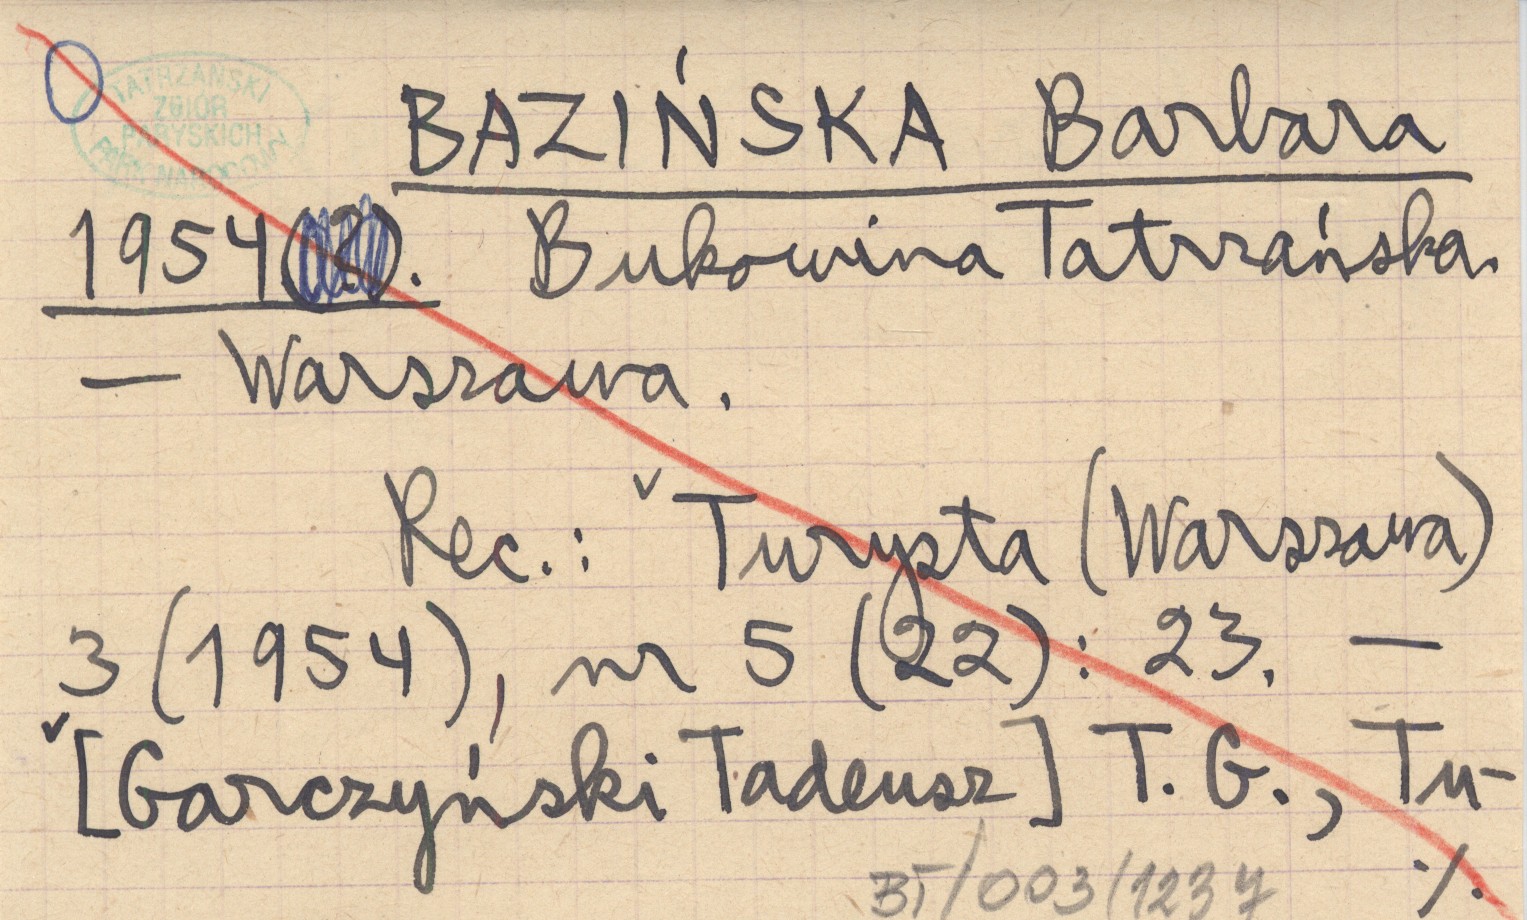 TATRZAŃSKI
ZBIÓR
PARYSKICH
PARK NARODOWY
BAZIŃSKA Barbara
1954(2). Bukowina Tatrzańska.
— Warszawa.
Rec.: ˇTurysta (Warszawa)
3 (1954), nr 5 (22): 23. —
ˇ[Garczyński Tadeusz] T. G., Tu-
./.
BT/003/1237